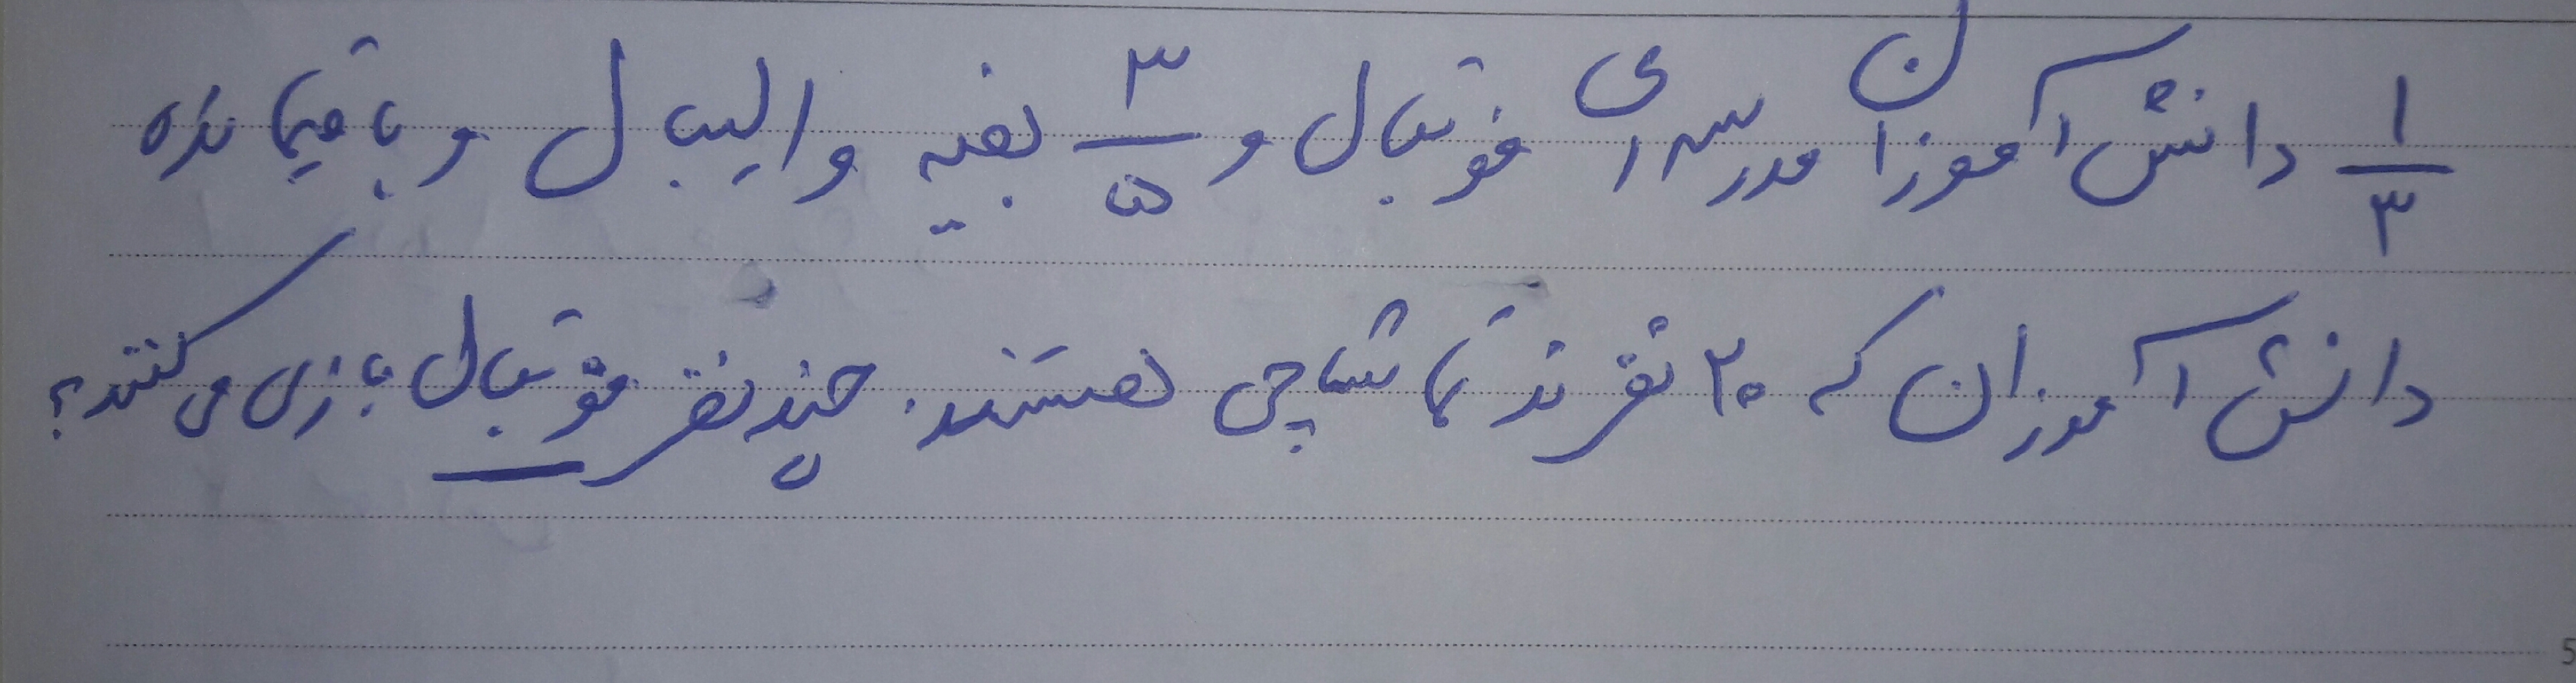 ۱/۳ دانش آموزان مدرسه ای فوتبال و ۳/۵ بقیه والیبال و باقیمانده
دانش آموزان که ۲۰ نفرند تماشاچی هستند. چند نفر فوتبال بازی می کنند؟
5